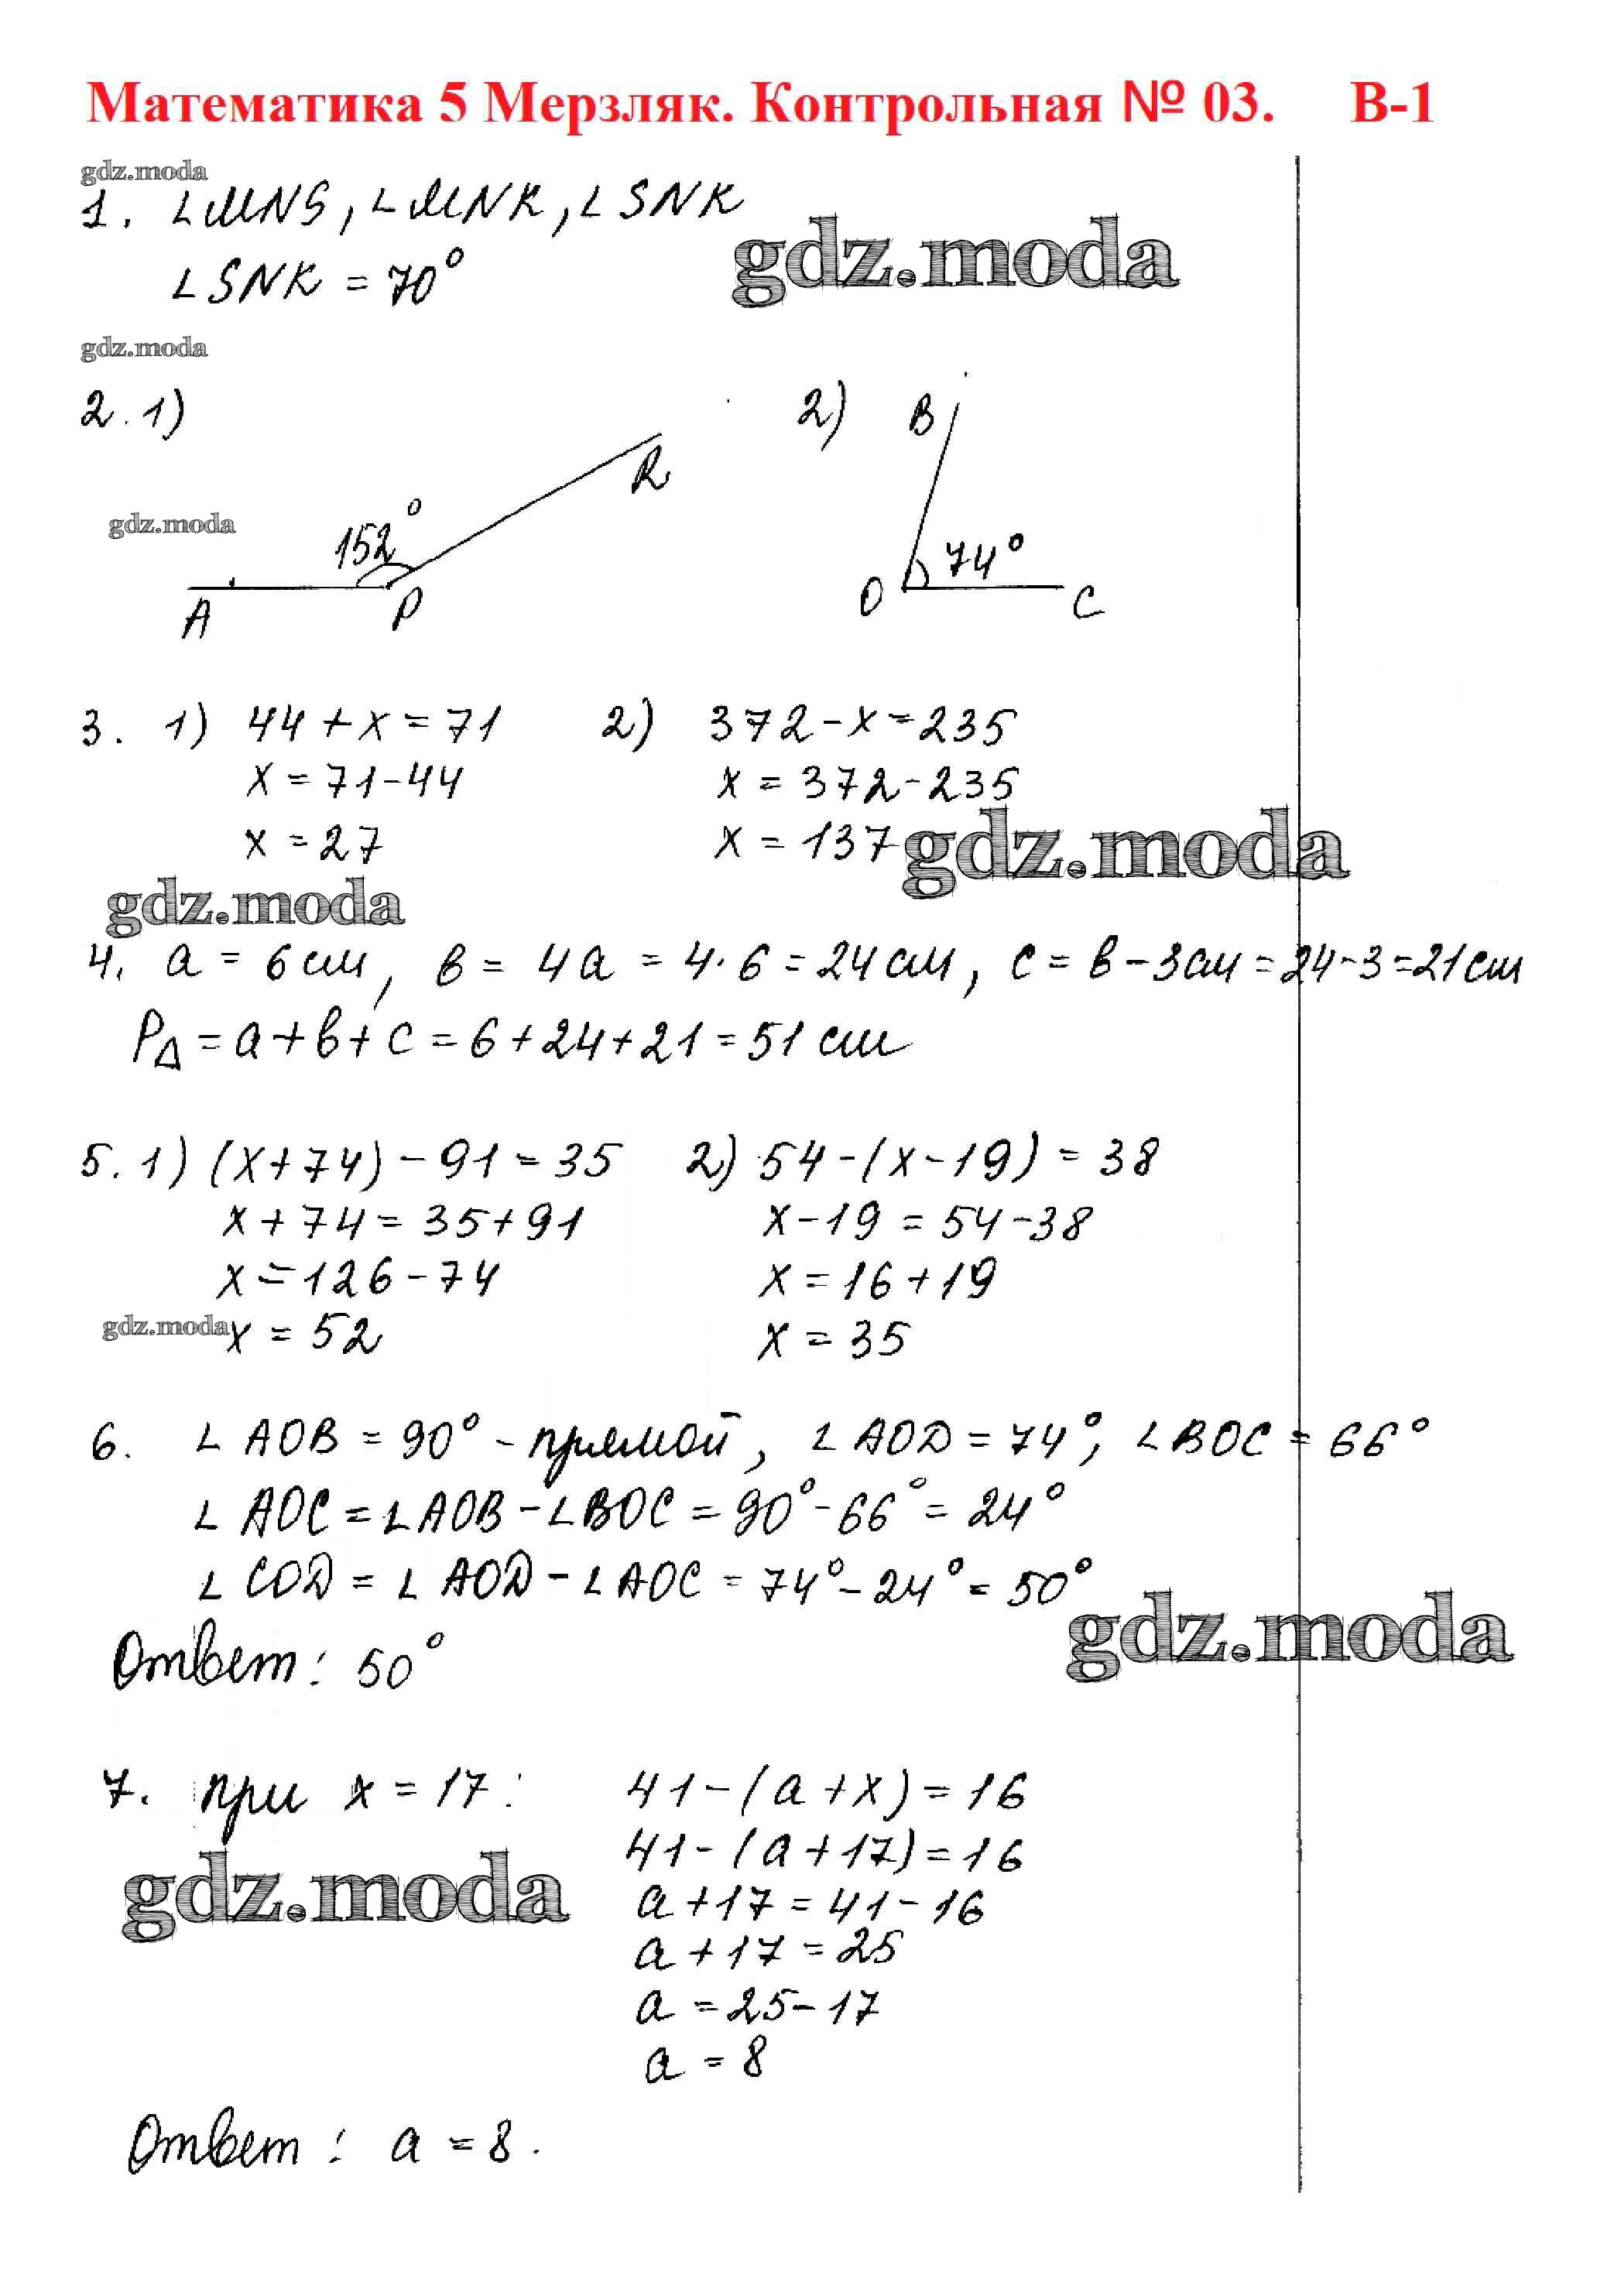 Математика 5 Мерзляк. Контрольная № 03. В-1
gdz.moda
1. ∠MNS, ∠MNK, ∠SNK
gdz.moda
∠SNK = 70°
gdz.moda
2. 1) 2)
B
R
gdz.moda
152° 74°
A P O C
3. 1) 44 + x = 71 2) 372 - x = 235
x = 71 - 44 x = 372 - 235
x = 27 x = 137
gdz.moda
gdz.moda
4. a = 6 см, в = 4a = 4 · 6 = 24 см, c = в - 3 см = 24 - 3 = 21 см
P△ = a + в + c = 6 + 24 + 21 = 51 см
5. 1) (x + 74) - 91 = 35 2) 54 - (x - 19) = 38
x + 74 = 35 + 91 x - 19 = 54 - 38
x = 126 - 74 x = 16 + 19
gdz.moda x = 52 x = 35
6. ∠AOB = 90° - прямой, ∠AOD = 74°, ∠BOC = 66°
∠AOC = ∠AOB - ∠BOC = 90° - 66° = 24°
∠COD = ∠AOD - ∠AOC = 74° - 24° = 50°
gdz.moda
Ответ: 50°
7. при x = 17: 41 - (a + x) = 16
41 - (a + 17) = 16
gdz.moda a + 17 = 41 - 16
a + 17 = 25
a = 25 - 17
a = 8
Ответ: a = 8.